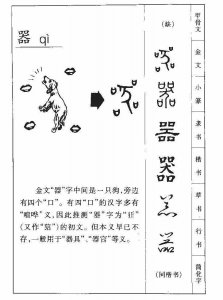 器 qì
(缺)
器
器
(同楷书)
甲骨文
金文
小篆
隶书
楷书
草书
行书
简化字
金文“器”字中间是一只狗，旁边
有四个“口”。有四“口”的汉字多有
“喧哗”义，因此推测“器”字为“狂”
的初文。但本义早已不
存，一般用于“器具”、“器官”等义。